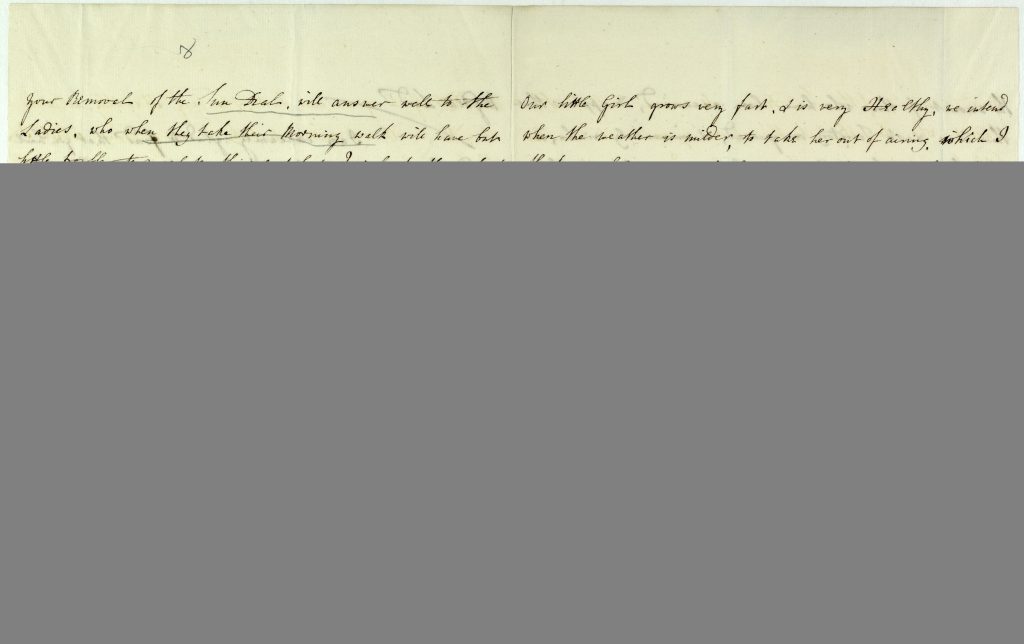 8
your Removal of the Sun Dial, will answer well to the
Ladies, who when they take their Morning walk will have but
Our little Girl grows very fast, & is very Healthy, we intend
when the weather is milder, to take her out of airing, which I